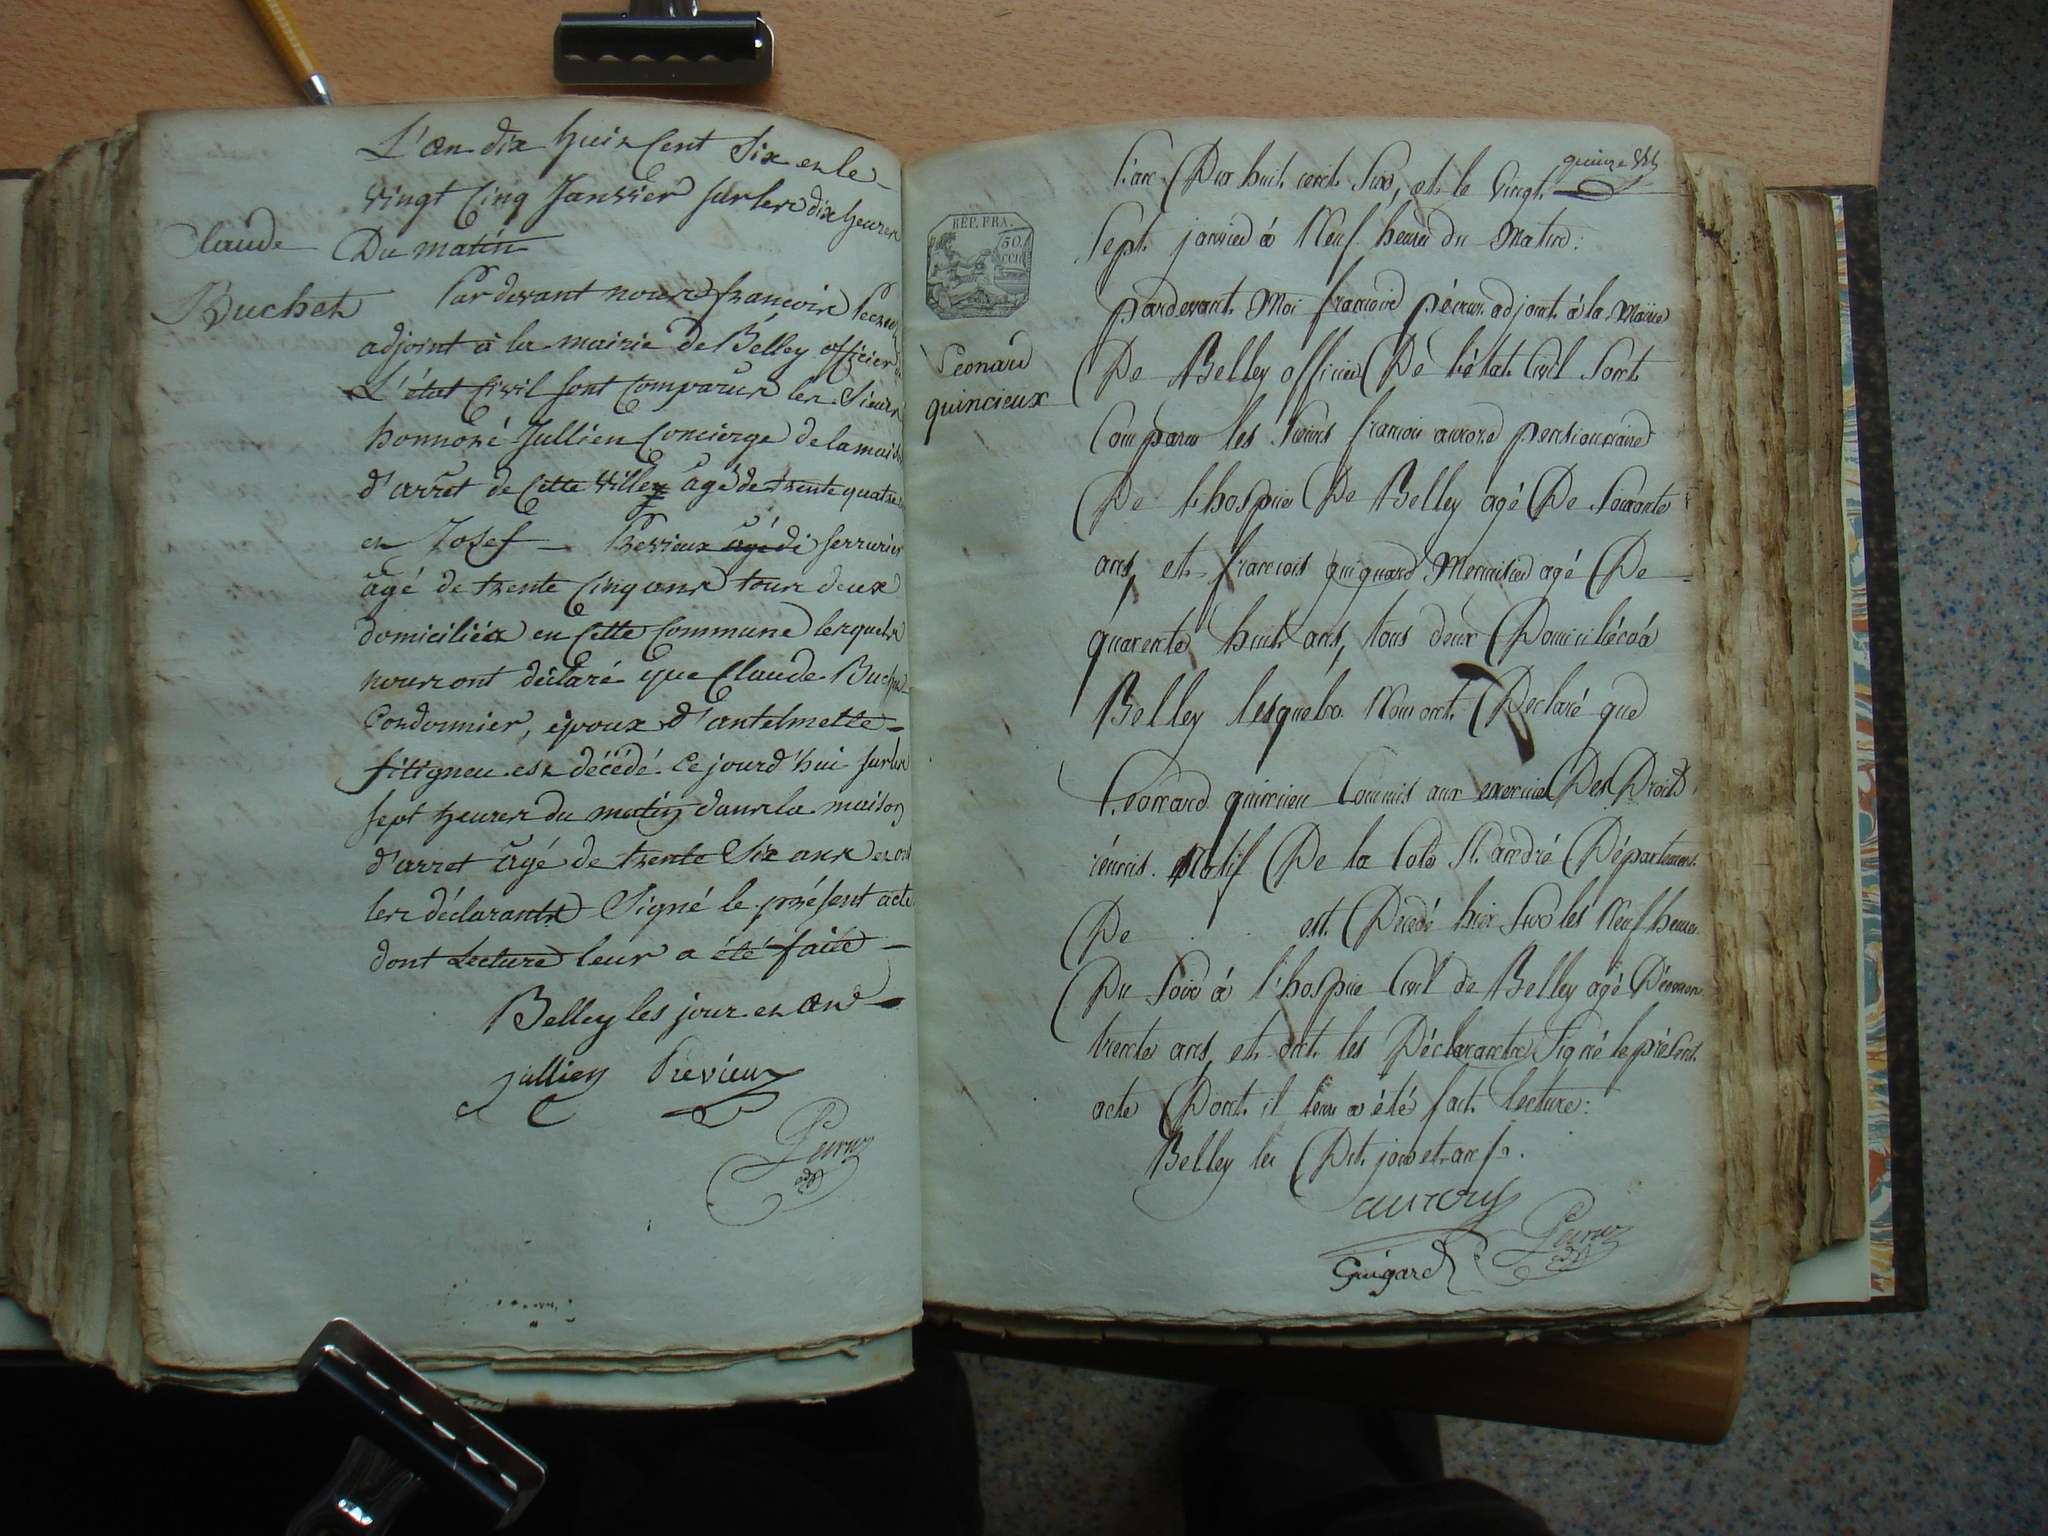 L'an dix huit Cent Six et le
vingt Cinq Janvier sur les dix heures
Du matin
Claude
Buchet
Pardevant nous françois Pecrus
adjoint à la mairie de Belley officier de
L'état Civil sont Comparus les Sieurs
honnoré Jullien Concierge de la maison
d'arret de Cette ville âgé de trente quatre
et Josef Previeux âgé di serrurier
âgé de trente Cinq ans tous deux
domiciliés en Cette Commune lesquels
nous ont déclaré que Claude Buchet
Cordonnier, époux d'antelmette
fitigneu est décédé Ce jourd'hui sur les
sept heures du matin dans la maison
d'arret âgé de trente Six ans et ont
les déclarants Signé le présent acte
dont Lecture leur a été faite
Belley les jour et an
Jullien Previeux
adj
quinze
L'an Dix huit cent Six, et le vingt
Sept janvier à Neuf heures du Matin:
RÉP. FRA.
50
Leonard
quincieux
pardevant Moi francois Pécrus adjoint à la Mairie
De Belley officier De l'état Civil Sont
Comparus les Sieurs francois aurore pensionnaire
De l'hospice De Belley agé De Soixante
ans, et francois guiguard Menuisier agé De
quarente huit ans, tous deux Domiciliés à
Belley lesquels Nous ont Declaré que
Leonard quincieu Commis aux exercices Des Droits
réunis Natif De la Cote St. andré Département
De est Décédé hier Sur les Neuf heures
Du Soir à l'hospice Civil de Belley agé D'environ
trente ans, et ont les Déclarants Signé le présent
acte Dont il leur a été fait Lecture:
Belley les Dit jour et an
Guigard
adj